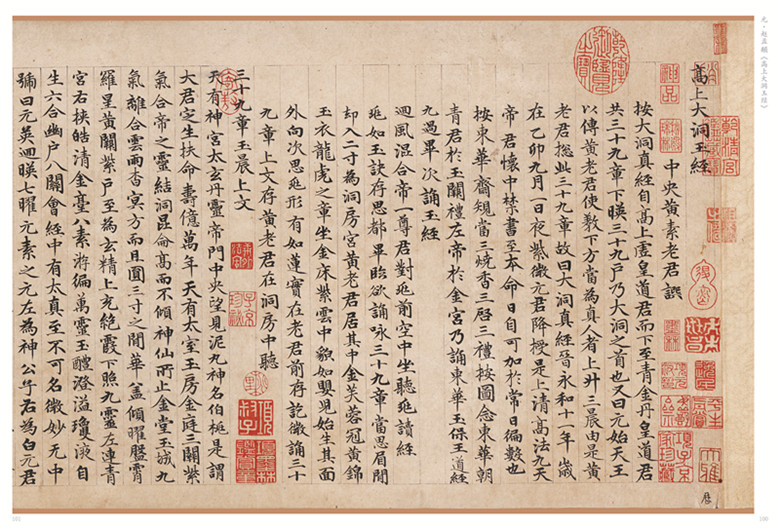 元·赵孟頫《高上大洞玉经》
高上大洞玉經
中央黄素老君譔
按大洞真經自高上虛皇道君而下至青金丹皇道君
共三十九章下暎三十九户乃大洞之首也又曰元始天王
以傳黄老君使教下方當為真人者上升三晨由是黄
老君総此三十九章故曰大洞真經晉永和十一年歲
在乙卯九月一日夜紫微元君降授是上清髙法九天
帝君懷中禁書至本命日自可加於常日徧數也
按東華齋規當三燒香三啓三禮按圖念東華朝
青君於玉闕禮左帝於金宮乃誦東華玉保王道經
九過畢次誦玉經
迴風混合帝一尊君對兆前空中坐聽兆讀經
兆如玉訣存思都畢臨欲誦咏三十九章當思眉間
却入二寸為洞房宮黄老君居其中金芙蓉冠黄錦
玉衣龍虎之章坐金床紫雲中貌如嬰兒始生其面
外向次思兆形有如蓮實在老君前存訖微誦三十
九章上文存黄老君在洞房中聽
三十九章玉晨上文
天有神宮太玄丹靈帝門中央望見泥丸神名伯桓是謂
大君定生扶命壽億萬年天有太室玉房金庭三關紫
氣合帝之靈結洞昆侖髙而不傾神仙所止金堂玉城九
氣離合雲雨杳冥方而且圓三寸之間華盖傾曜膃霄
羅星黄闕紫户至為玄精上充絶霞下照九靈左連青
宮右挟皓清金臺八素游徧萬靈玉醴澄溢瓊液自
生六合幽户八關會經中有太真至不可名微妙无中
號曰元英迴暎七曜元素之元左為神公子右為白元君
乾隆御覽之寶
乾清宮
神品
子京
墨林
101
100